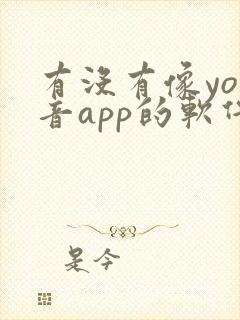 有没有像yo
音app的軟件
是今